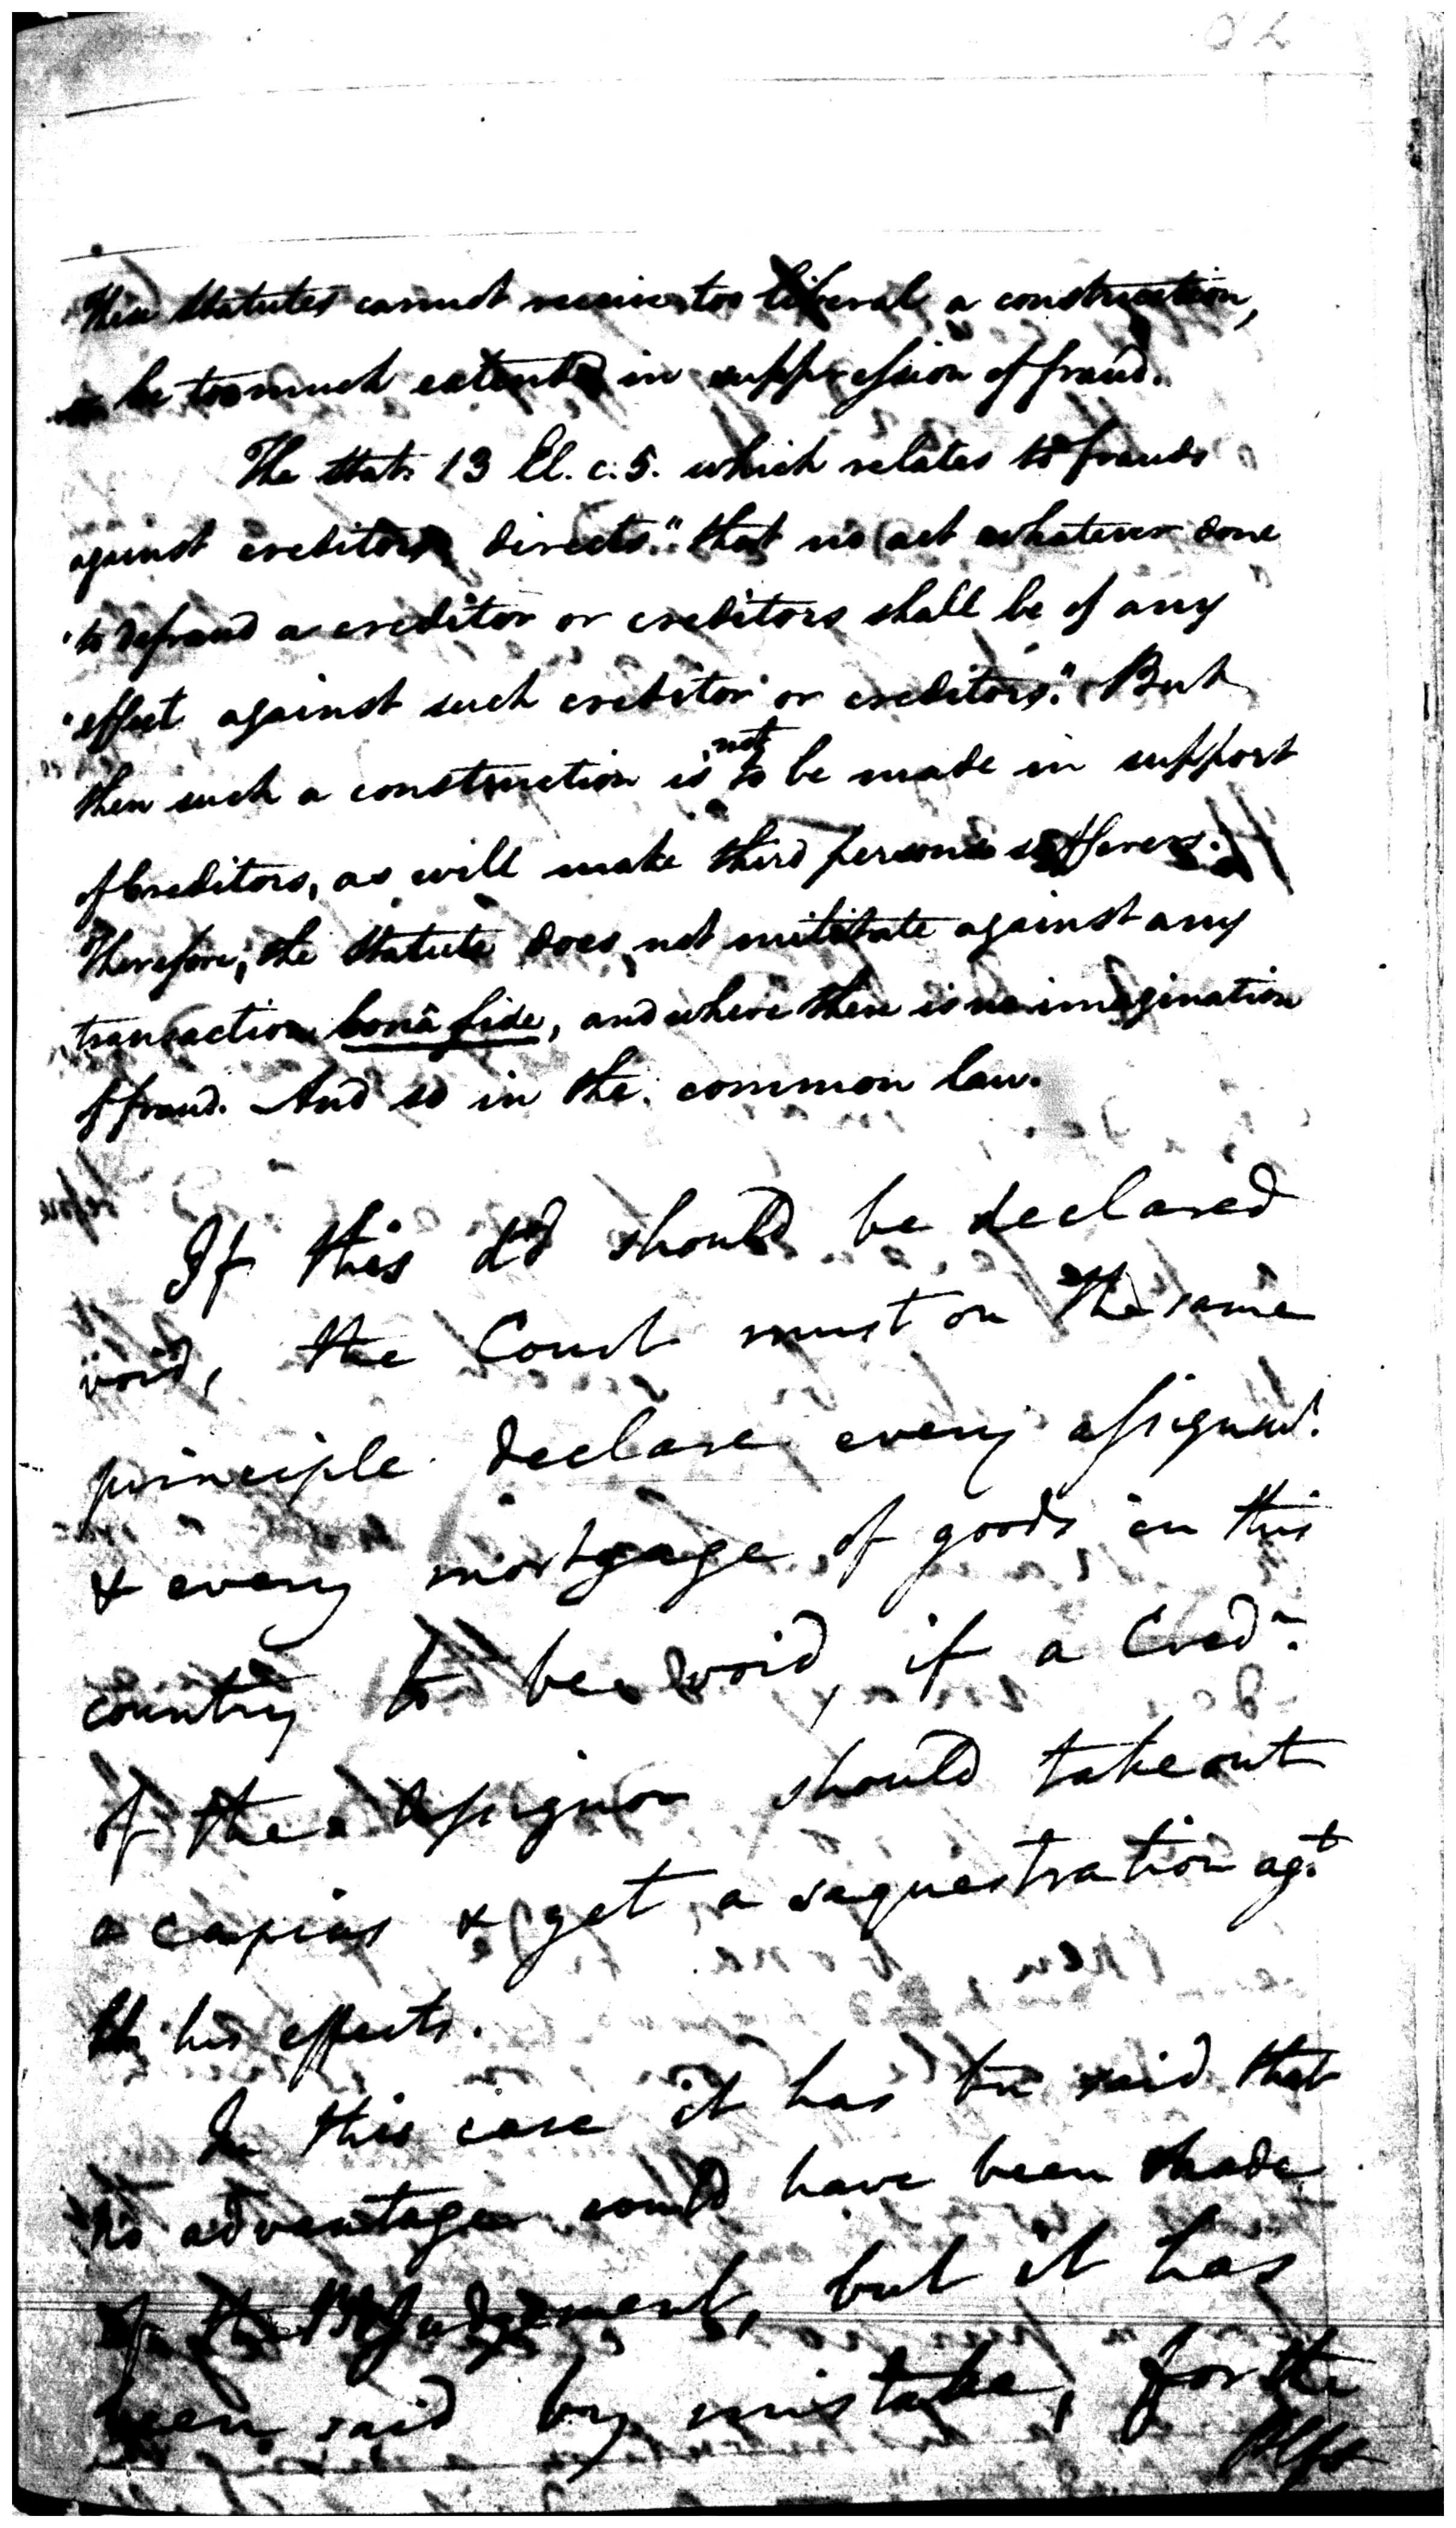 These statutes cannot receive too liberal a construction,
or be too much extended in suppression of fraud.
The stat. 13 El. c. 5. which relates to frauds
against creditors directs "that no act whatever done
"to defraud a creditor or creditors shall be of any
"effect against such creditor or creditors." But
then such a construction is not to be made in support
of Creditors, as will make third persons sufferers.
Therefore, the Statute does not militate against any
transaction bonâ fide, and where there is no imagination
of fraud. And so in the common law.
If this d'd should be declared
void, the Court must on the same
principle declare every assignmt.
& every mortgage of goods in this
country to be void, if a Credr.
of the Assignor should take out
a capias & get a sequestration agt.
his effects.
In this case it has bn said that
no advantage could have been made
of the Judgement, but it has
been said by mistake, for the
Plft